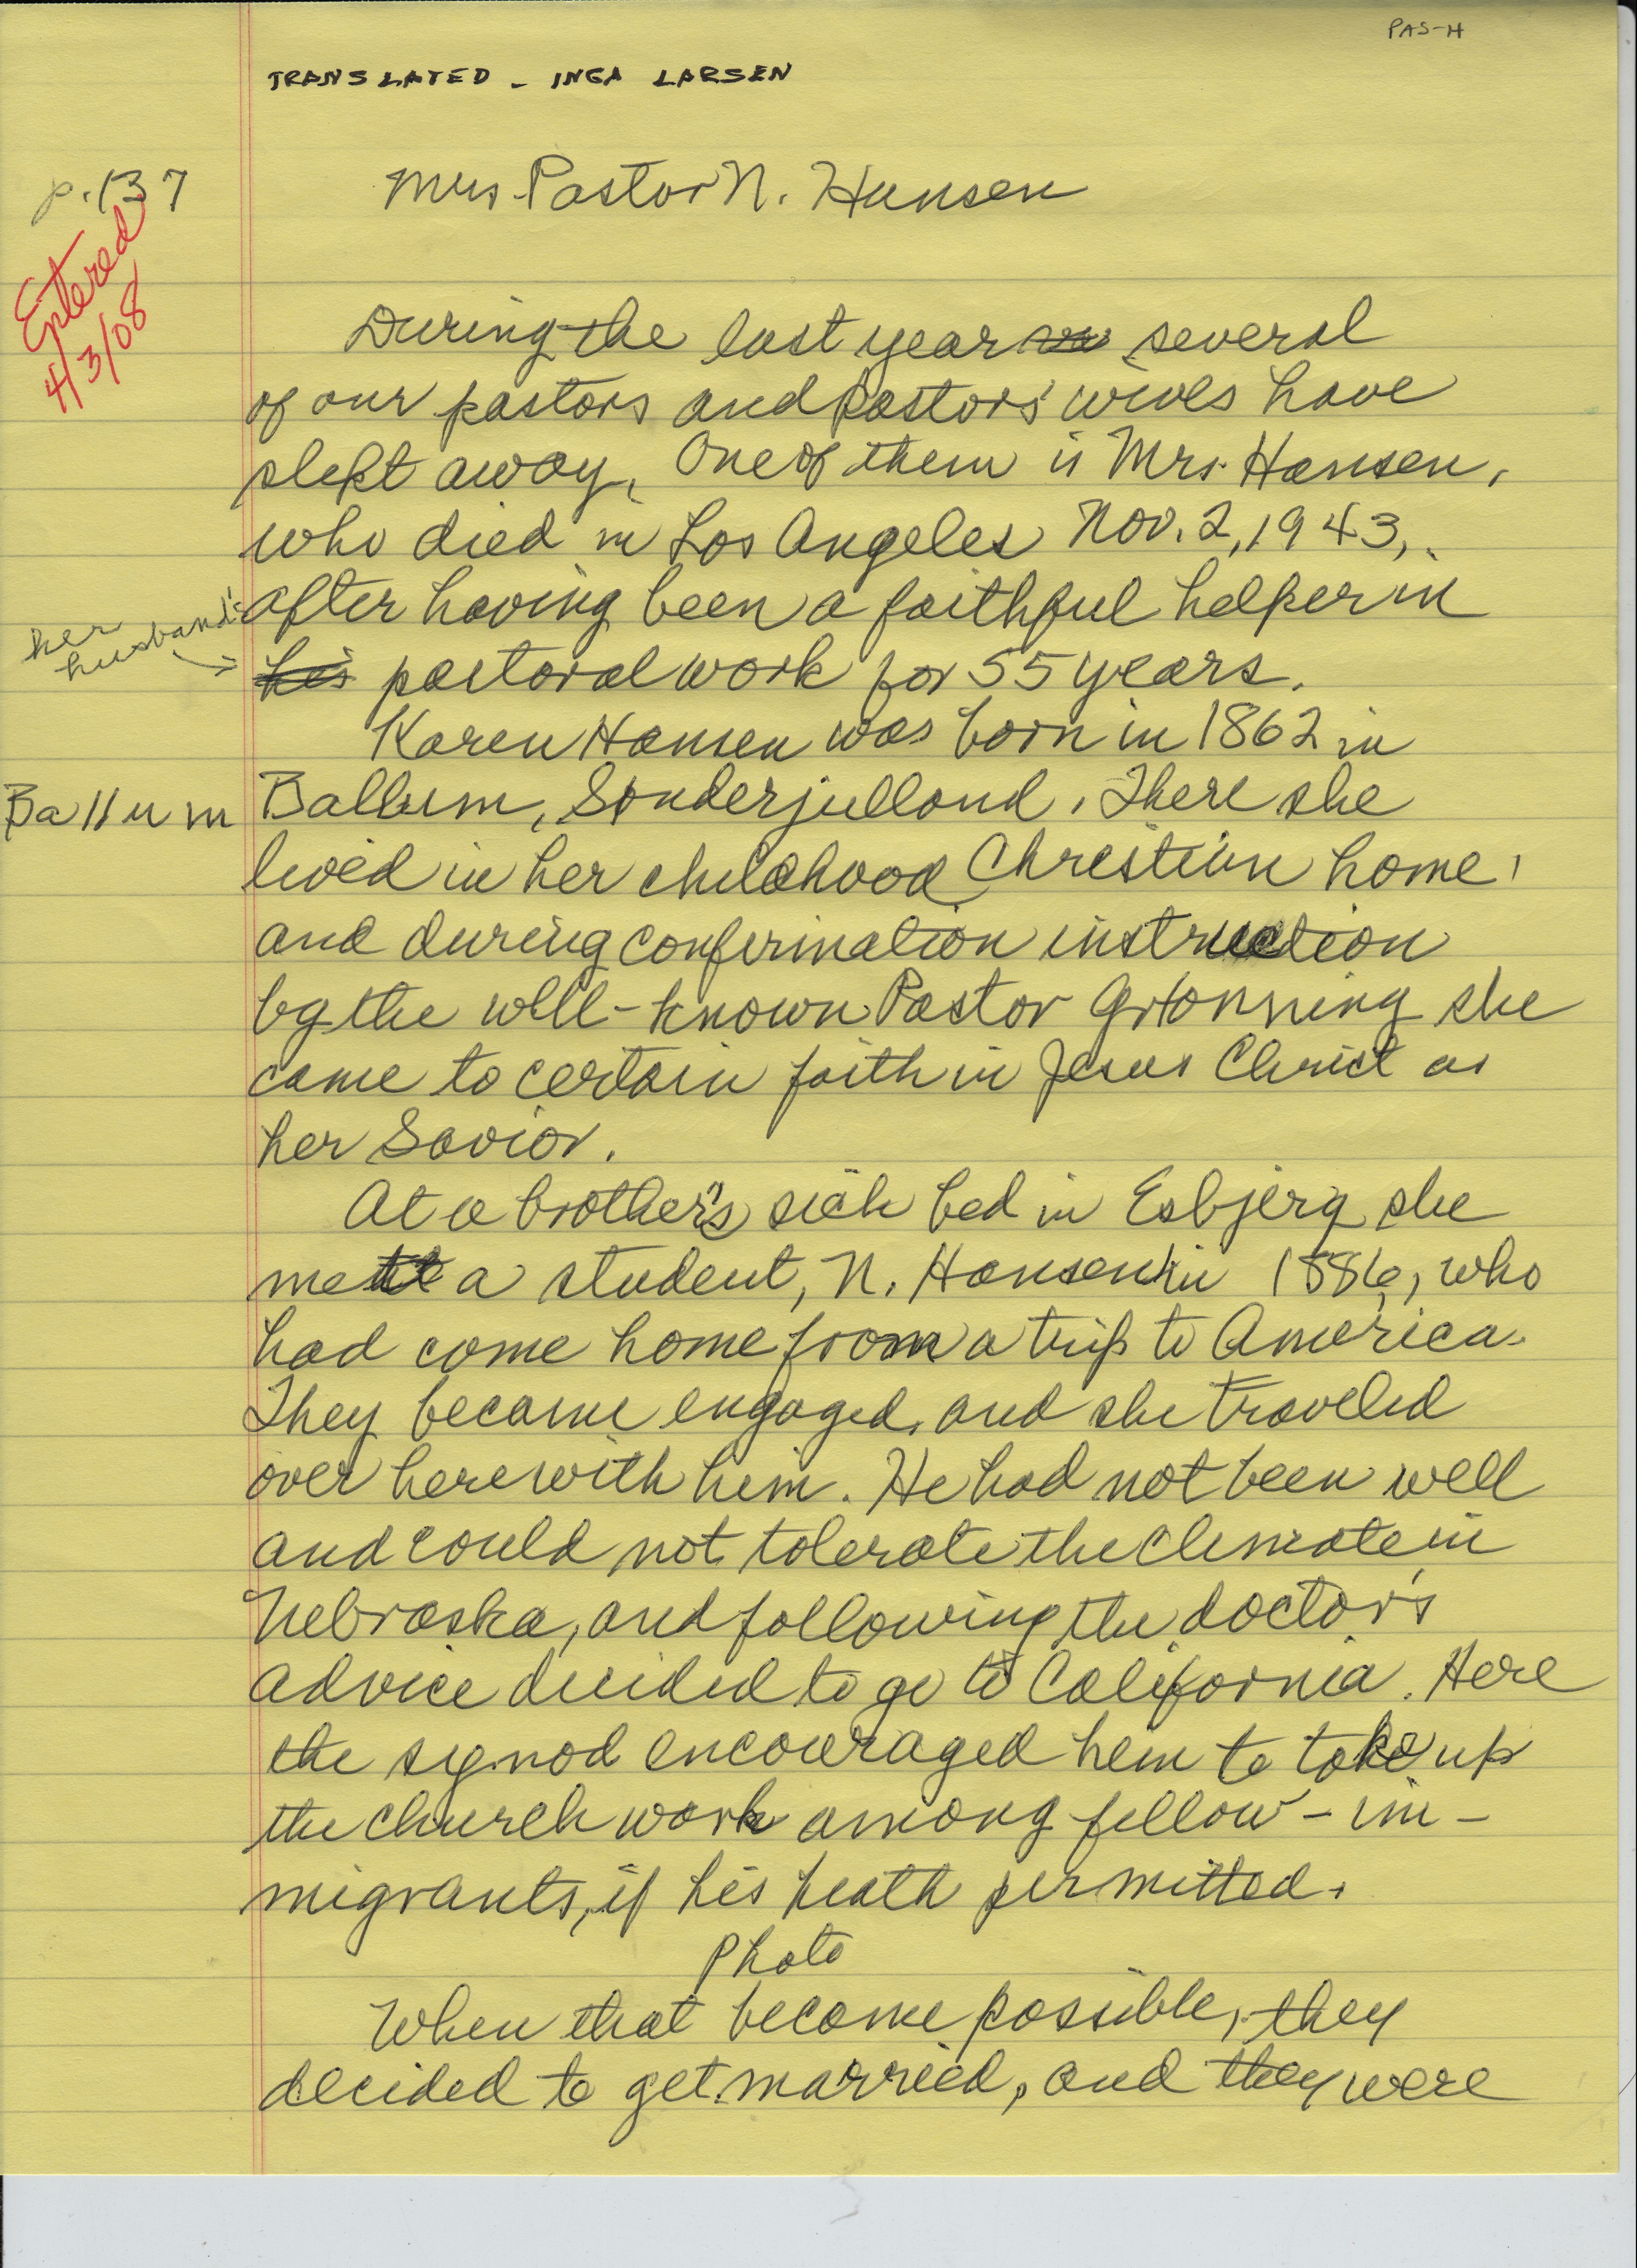 PAS-H
TRANSLATED - INGA LARSEN
p. 137
Mrs Pastor N. Hansen
Entered
4/3/08
During the last year several
of our pastors and pastors' wives have
slept away. One of them is Mrs. Hansen,
who died in Los Angeles Nov. 2, 1943,
after having been a faithful helper in
her
husband's
his pastoral work for 55 years.
Karen Hansen was born in 1862 in
Ballum
Ballum, Sønderjylland. There she
lived in her childhood Christian home,
and during confirmation instruction
by the well-known Pastor Grønning she
came to certain faith in Jesus Christ as
her Savior.
At a brother's sick bed in Esbjerg she
met a student, N. Hansen in 1886, who
had come home from a trip to America.
They became engaged, and she traveled
over here with him. He had not been well
and could not tolerate the climate in
Nebraska, and following the doctor's
advice decided to go to California. Here
the synod encouraged him to take up
the church work among fellow-im-
migrants, if his heath permitted.
Photo
When that become possible, they
decided to get married, and they were